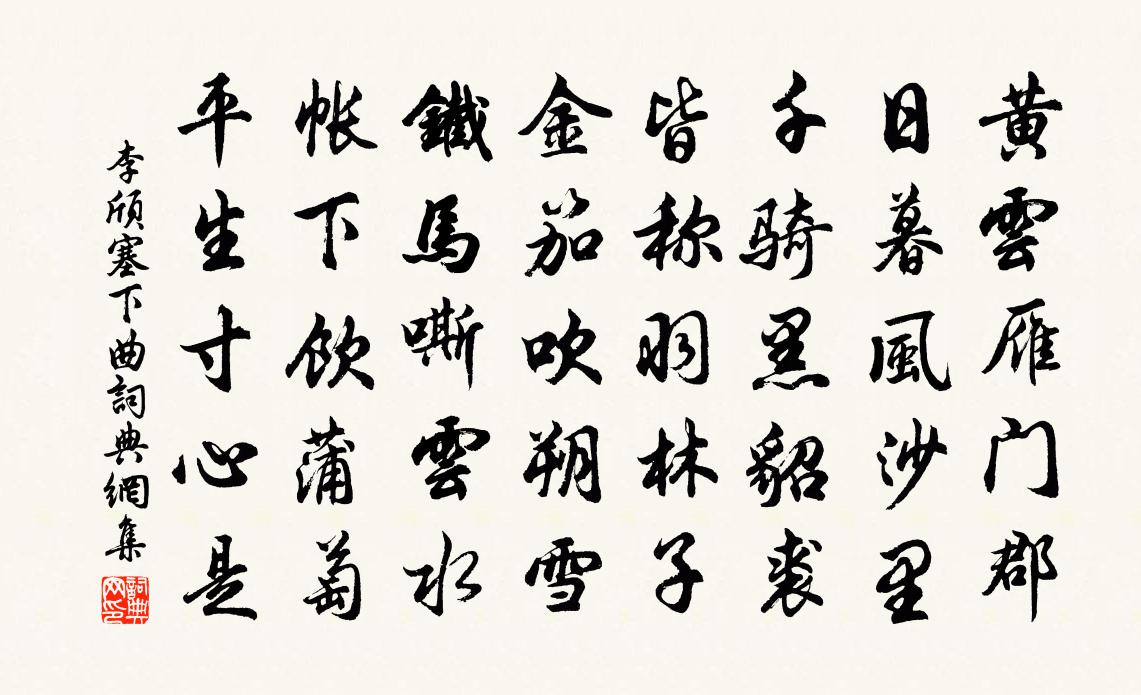 黄雲雁门郡
日暮風沙里
千骑黑貂裘
皆称羽林子
金笳吹朔雪
鐵馬嘶雲水
帐下飲蒲萄
平生寸心是
李颀塞下曲詞典網集
詞典网印